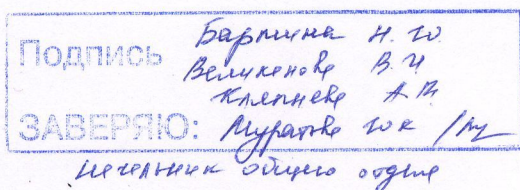 Подпись Бартина Н. Ю.
Великенове В. И
Кляпнева А. В.
ЗАВЕРЯЮ: Муратове Ю К
Начальник общего отдела